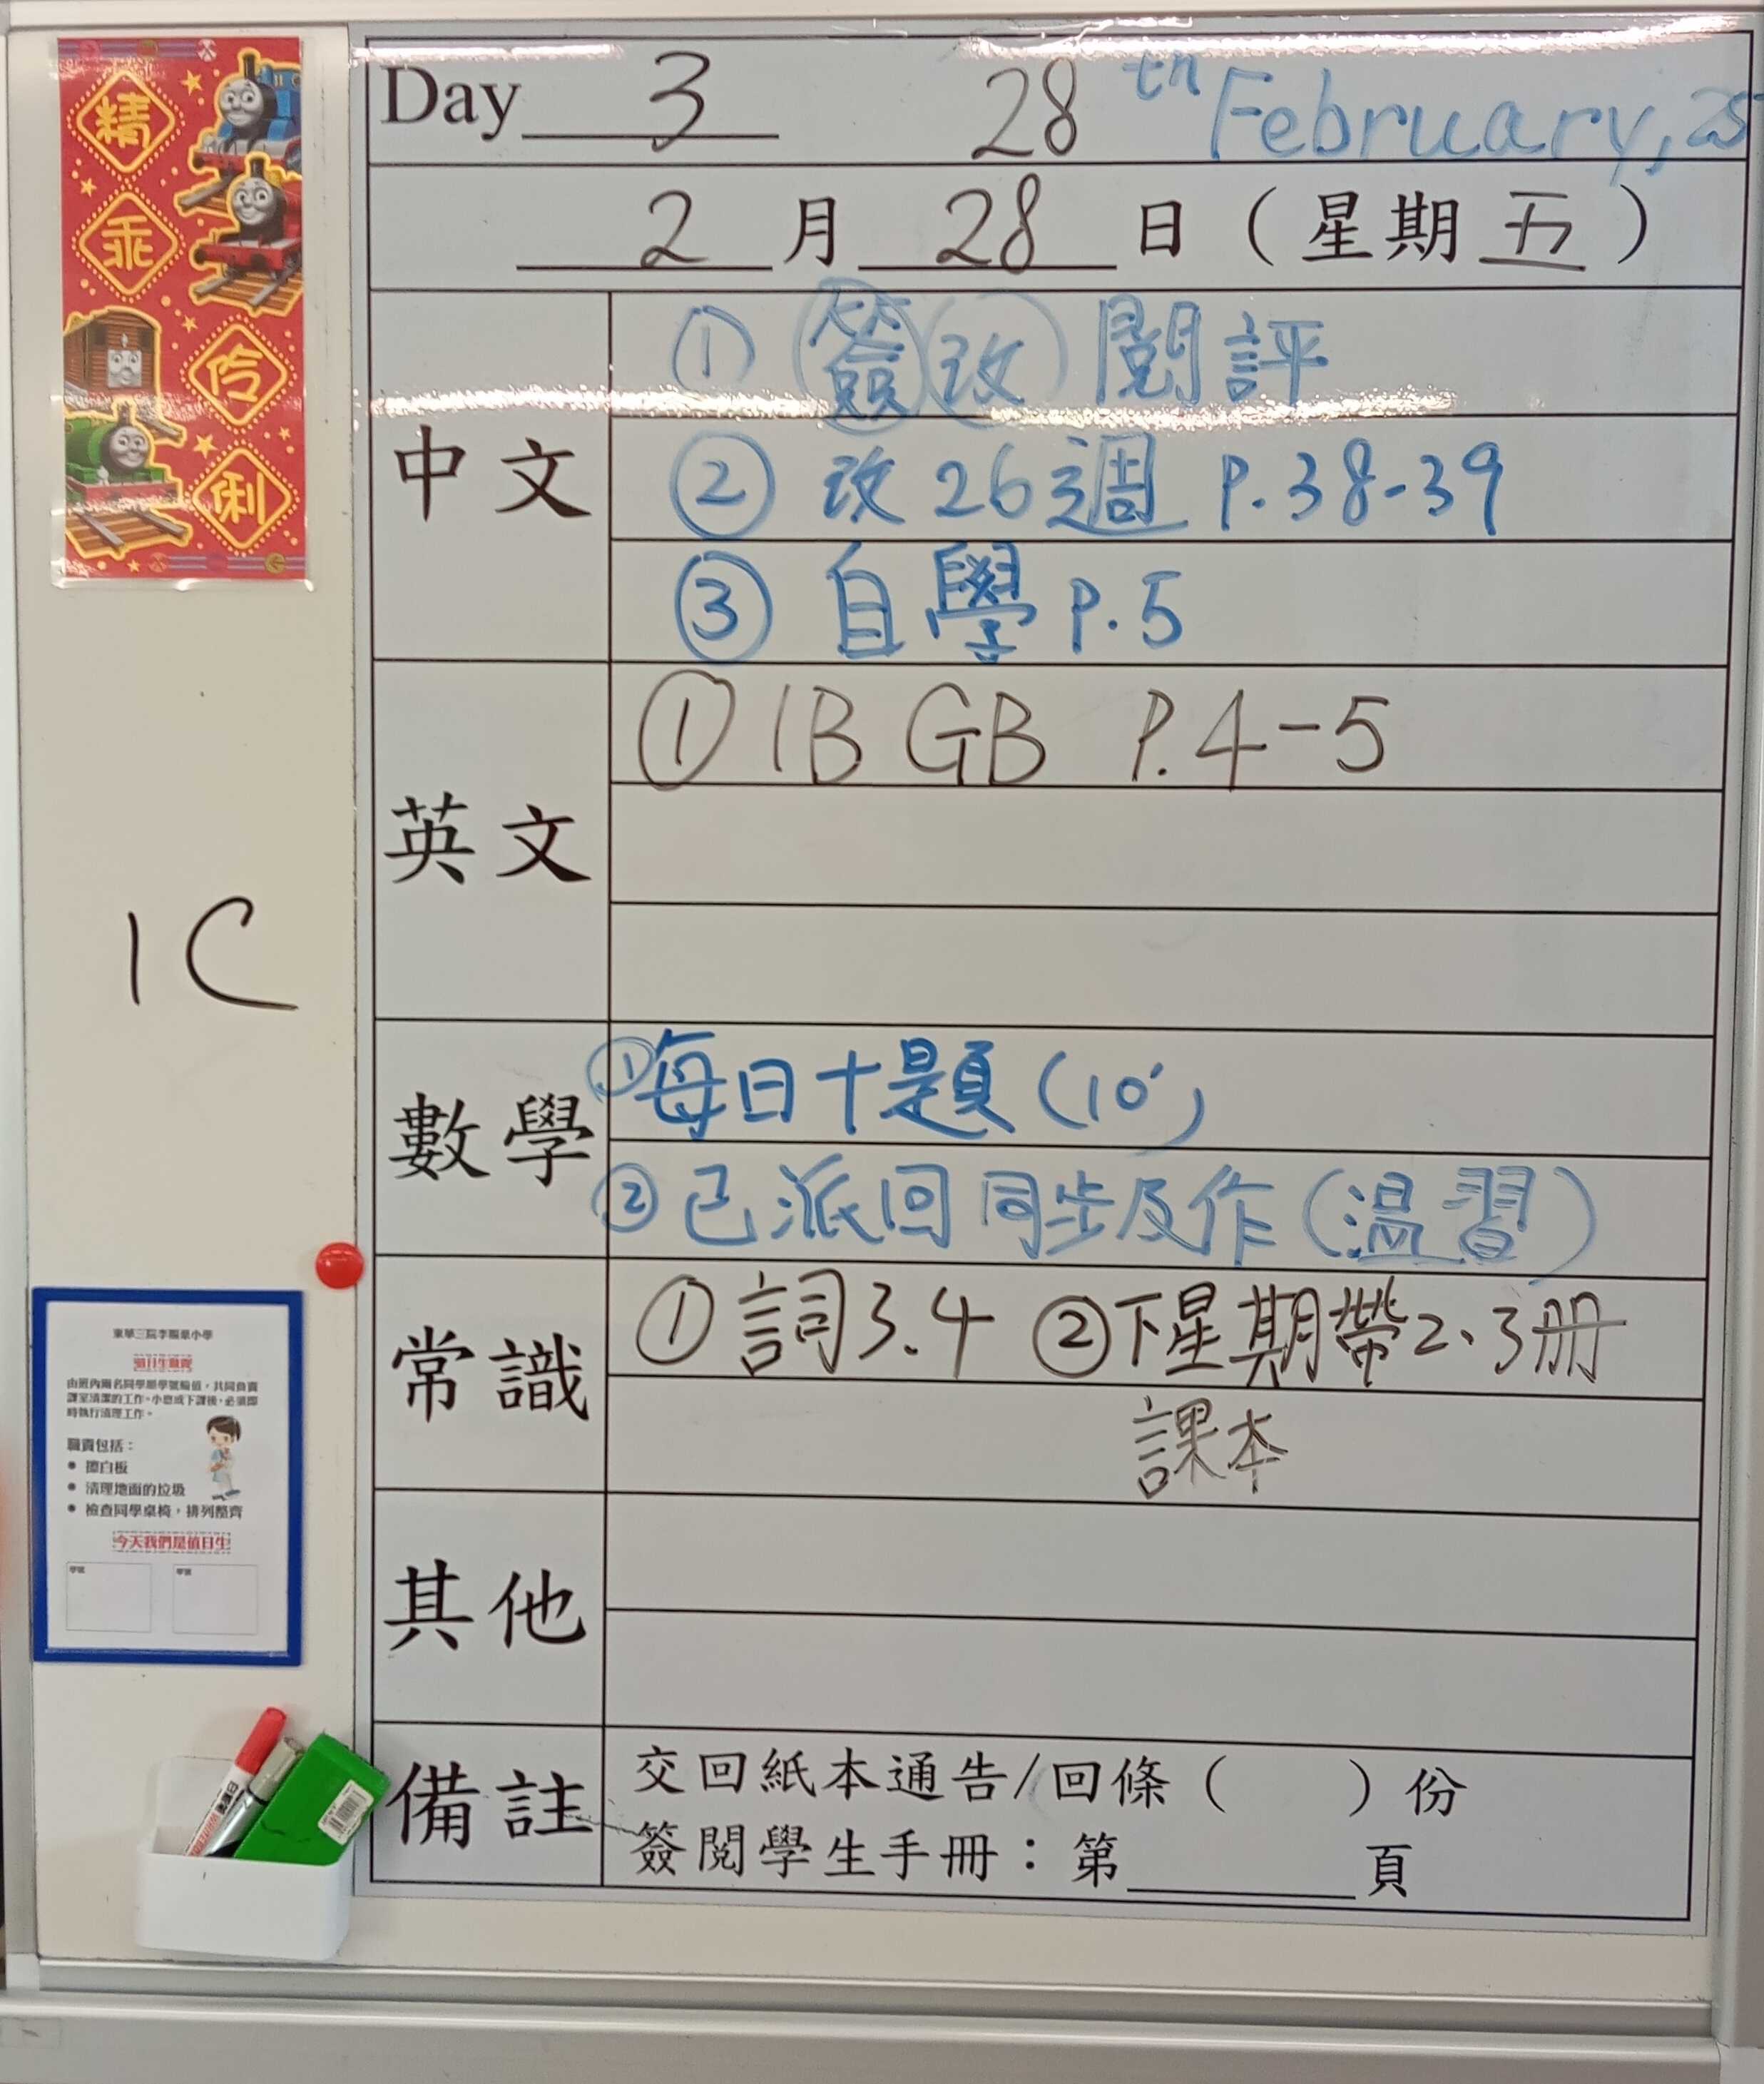 精
乖
伶
俐
Day 3 28th February, 25
2 月 28 日 ( 星期 五 )
中文
① 簽 改 閱評
② 改 26週 P.38-39
③ 自學 P.5
英文
① 1B GB P.4-5
1C
數學
①每日十題 (10')
②已派回同步及作 (温習)
常識
① 詞3.4 ②下星期帶2、3冊
課本
其他
備註
交回紙本通告/回條 ( ) 份
簽閱學生手冊：第 頁
值日生職責
由班內兩名同學順學號輪值，共同負責
課室清潔的工作。小息或下課後，必須即
時執行清理工作。
職責包括：
● 擦白板
● 清理地面的垃圾
● 檢查同學桌椅，排列整齊
今天我們是值日生
學號 學號